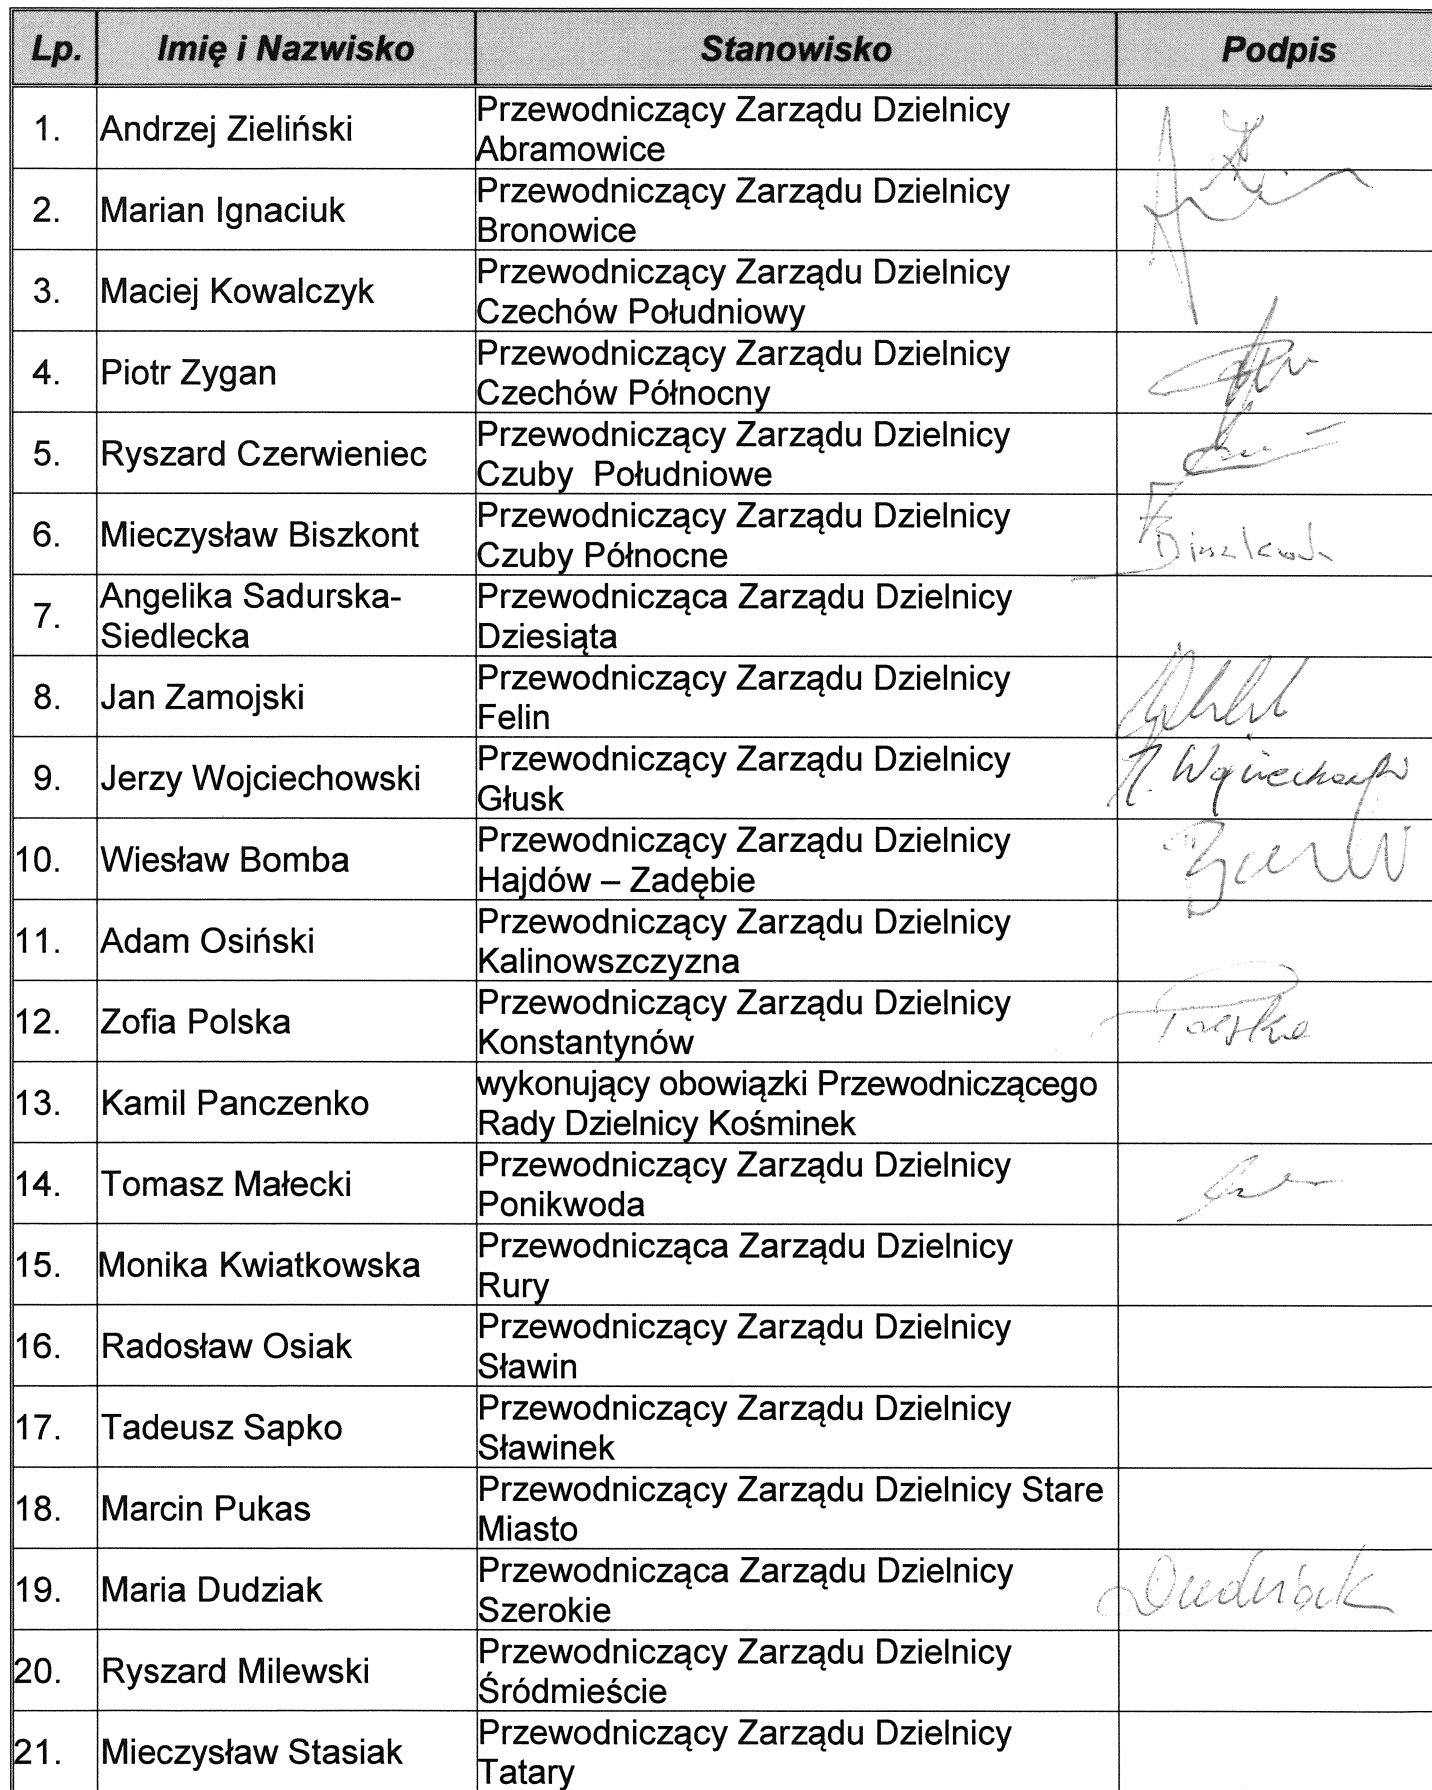 Lp. Imię i Nazwisko Stanowisko Podpis
1. Andrzej Zieliński Przewodniczący Zarządu Dzielnicy
Abramowice
2. Marian Ignaciuk Przewodniczący Zarządu Dzielnicy
Bronowice
3. Maciej Kowalczyk Przewodniczący Zarządu Dzielnicy
Czechów Południowy
4. Piotr Zygan Przewodniczący Zarządu Dzielnicy
Czechów Północny
5. Ryszard Czerwieniec Przewodniczący Zarządu Dzielnicy
Czuby Południowe
6. Mieczysław Biszkont Przewodniczący Zarządu Dzielnicy
Czuby Północne
7. Angelika Sadurska-
Siedlecka Przewodnicząca Zarządu Dzielnicy
Dziesiąta
8. Jan Zamojski Przewodniczący Zarządu Dzielnicy
Felin
9. Jerzy Wojciechowski Przewodniczący Zarządu Dzielnicy
Głusk
10. Wiesław Bomba Przewodniczący Zarządu Dzielnicy
Hajdów – Zadębie
11. Adam Osiński Przewodniczący Zarządu Dzielnicy
Kalinowszczyzna
12. Zofia Polska Przewodniczący Zarządu Dzielnicy
Konstantynów
13. Kamil Panczenko wykonujący obowiązki Przewodniczącego
Rady Dzielnicy Kośminek
14. Tomasz Małecki Przewodniczący Zarządu Dzielnicy
Ponikwoda
15. Monika Kwiatkowska Przewodnicząca Zarządu Dzielnicy
Rury
16. Radosław Osiak Przewodniczący Zarządu Dzielnicy
Sławin
17. Tadeusz Sapko Przewodniczący Zarządu Dzielnicy
Sławinek
18. Marcin Pukas Przewodniczący Zarządu Dzielnicy Stare
Miasto
19. Maria Dudziak Przewodnicząca Zarządu Dzielnicy
Szerokie Dudziak
20. Ryszard Milewski Przewodniczący Zarządu Dzielnicy
Śródmieście
21. Mieczysław Stasiak Przewodniczący Zarządu Dzielnicy
Tatary